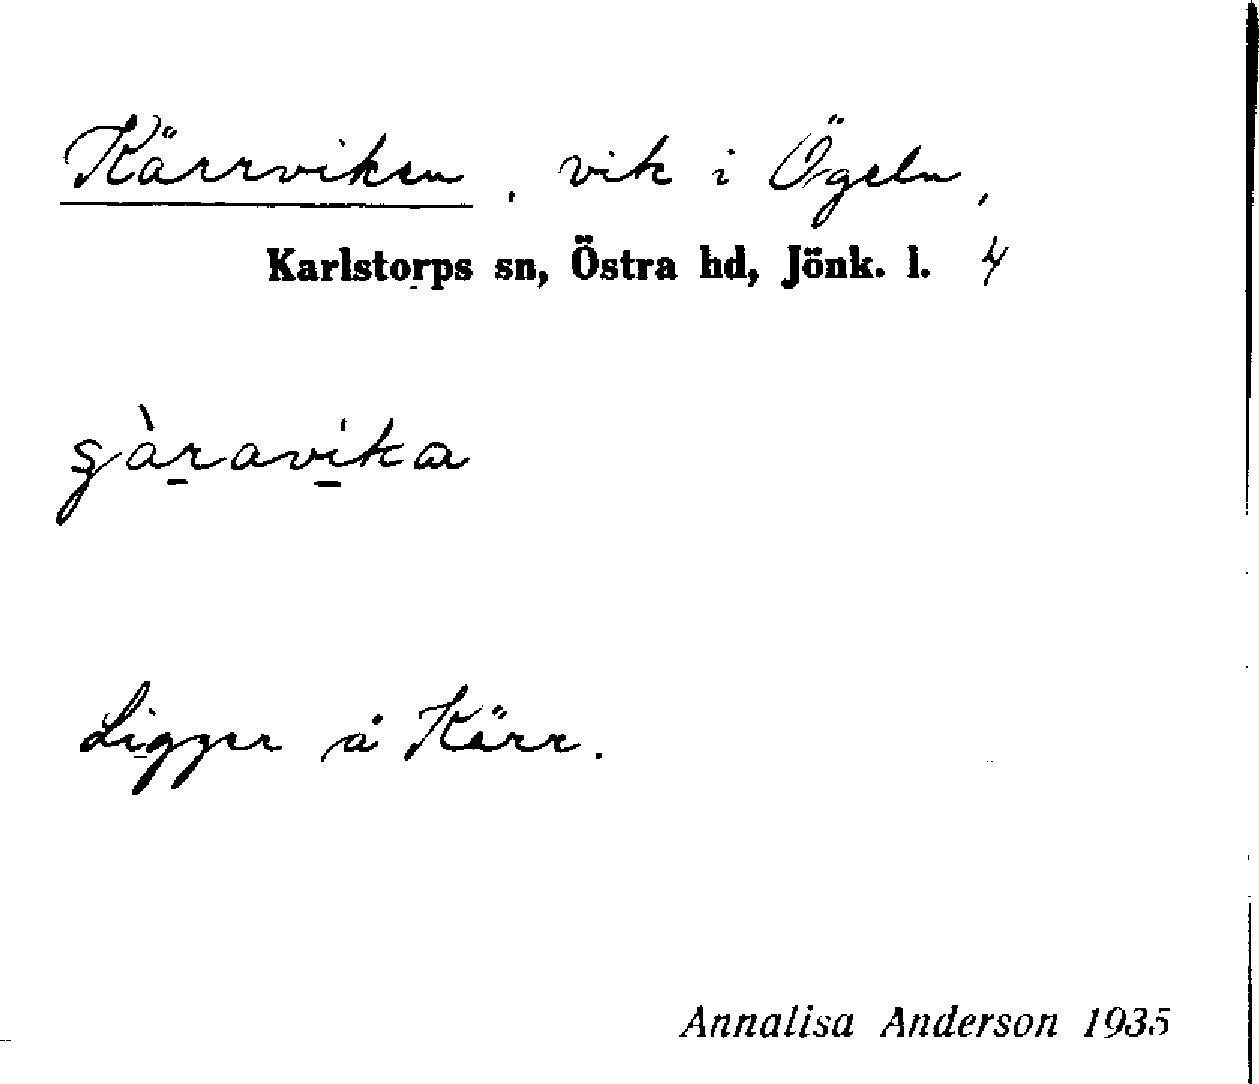 Kärrviken, vik i Ögeln,
Karlstorps sn, Östra hd, Jönk. l. 4
ʂàravika
Ligger å Kärr.
Annalisa Anderson 1935